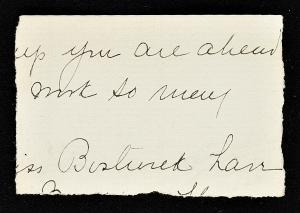 up you are ahead
work so many
iss Bostwick